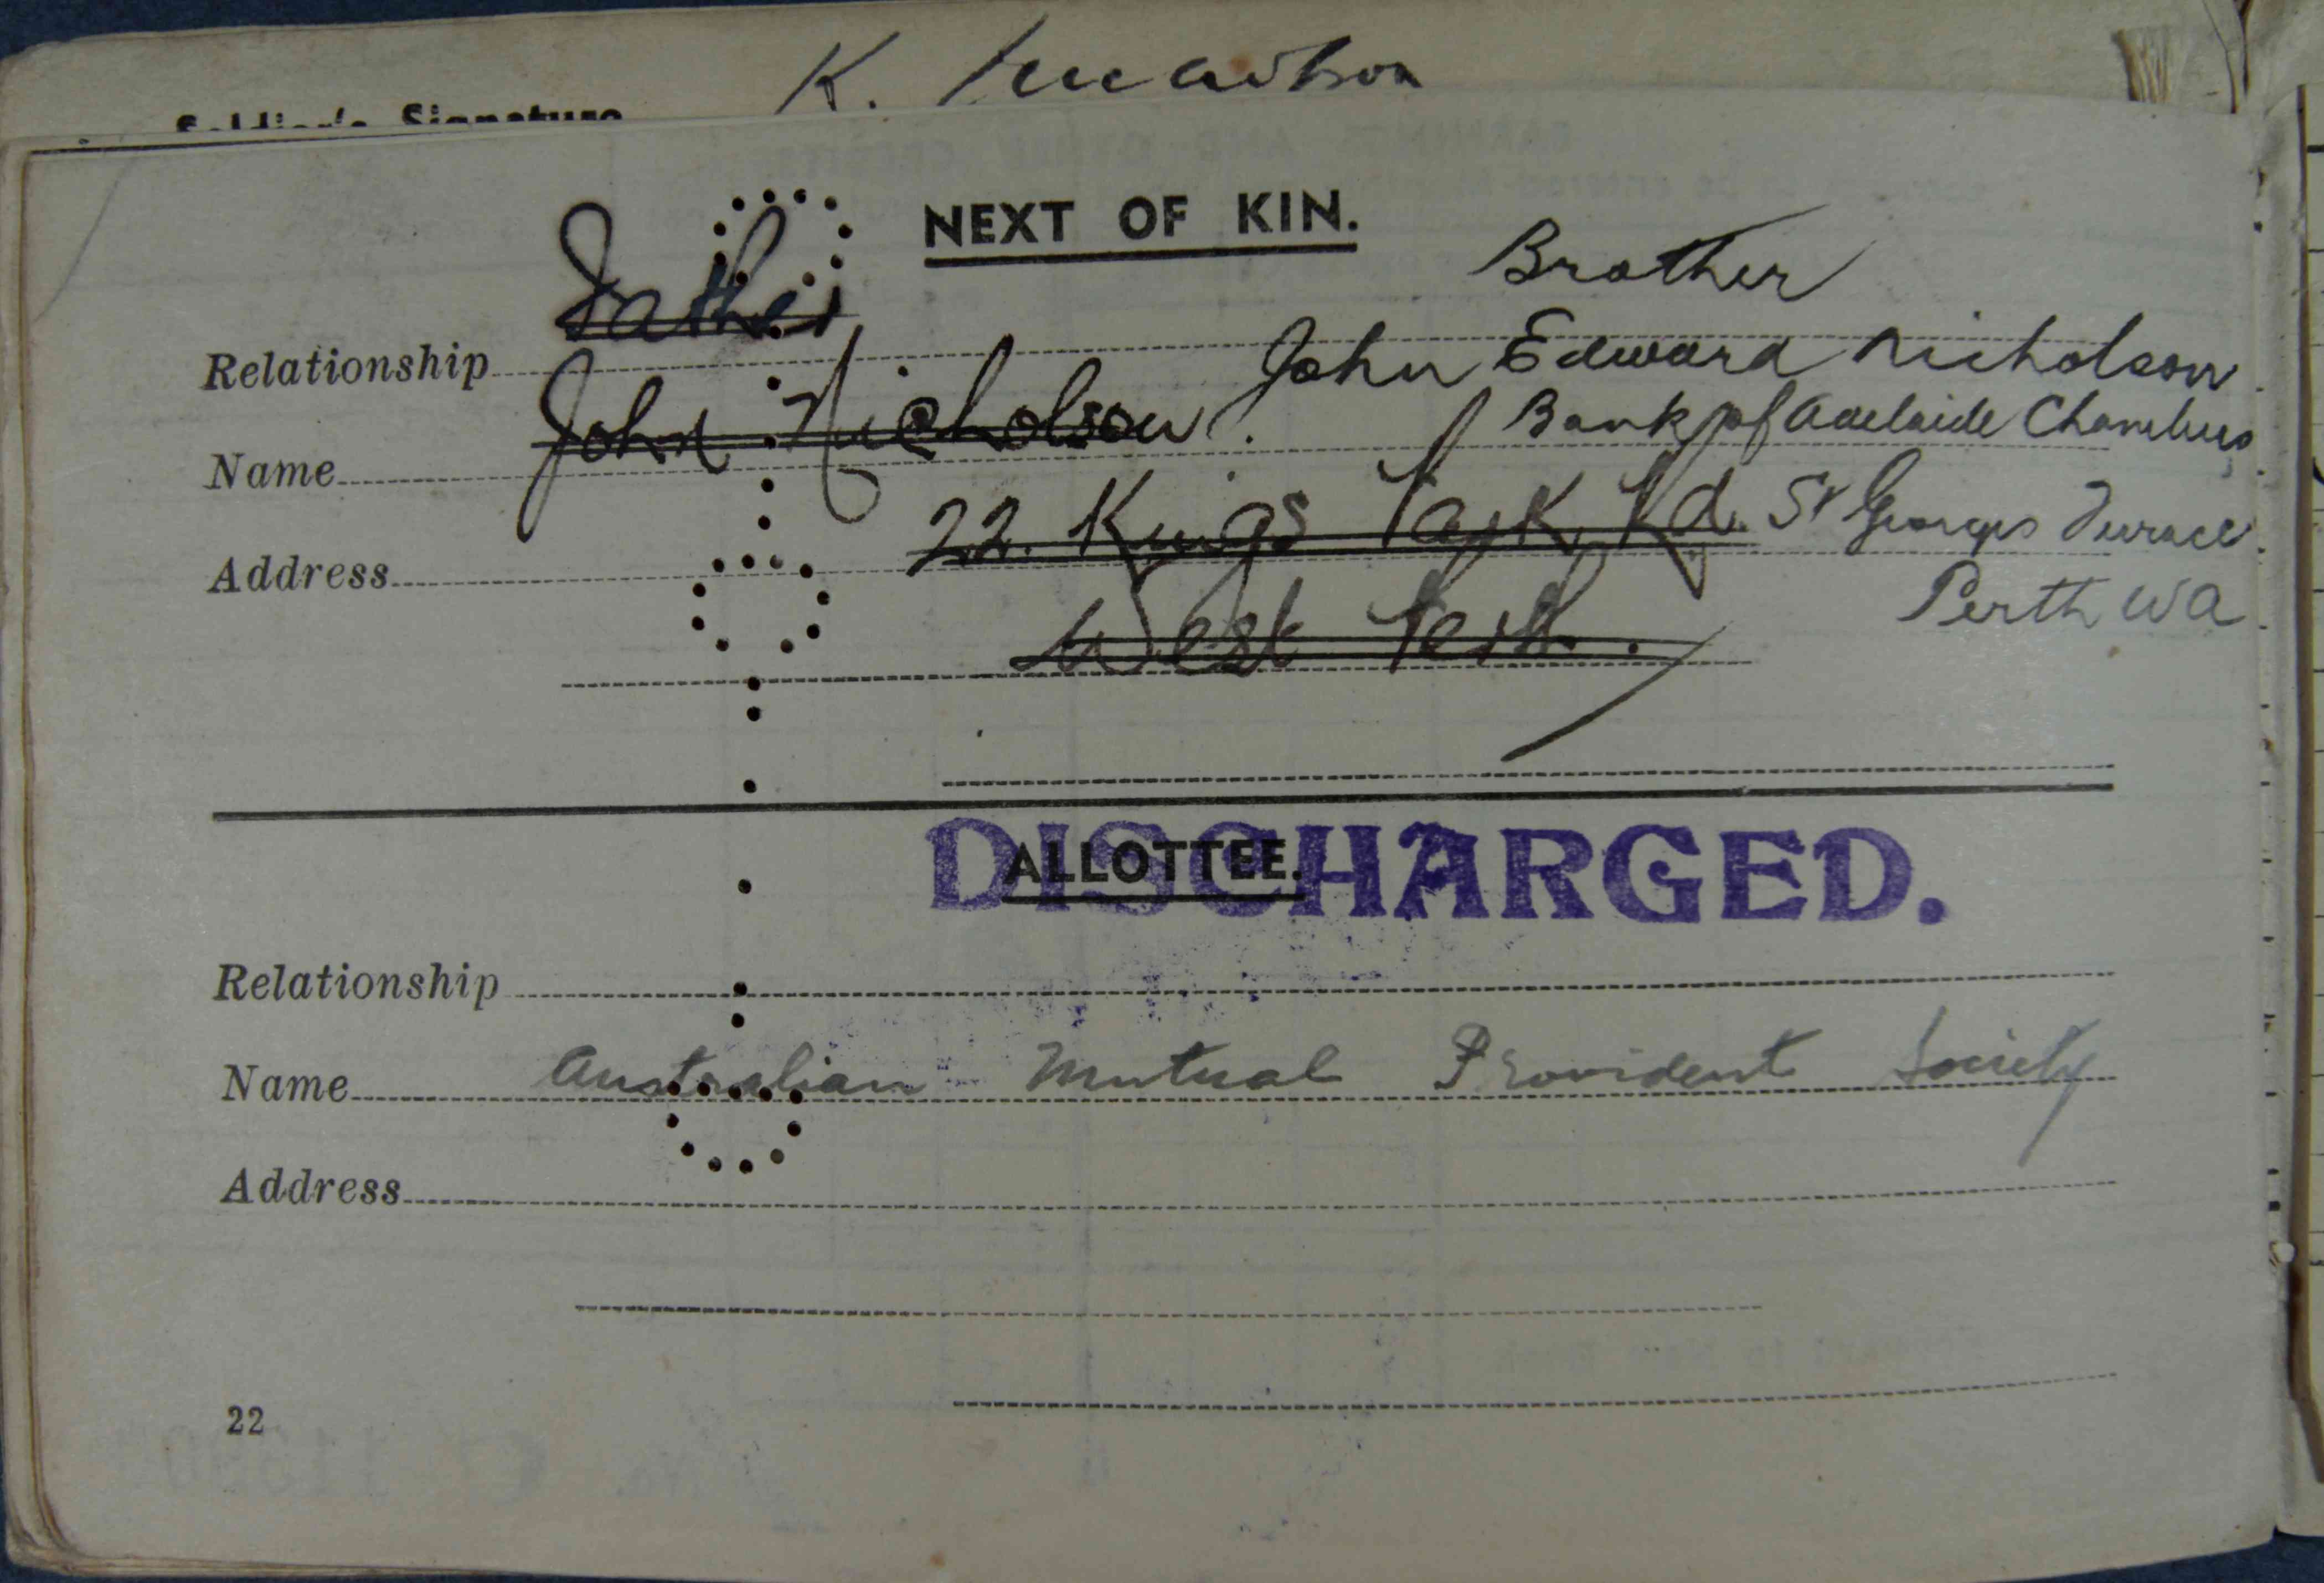 K.
Soldier's Signature
NEXT OF KIN.
Father Brother
Relationship
John Nicholson. John Edward Nicholson
Name
Bank of Adelaide Chambers
22. Kings Park Rd. St Georges Terrace
Address
West Perth. Perth WA
DISCHARGED.
ALLOTTEE.
Relationship
Name Australian Mutual Provident Society
Address
22